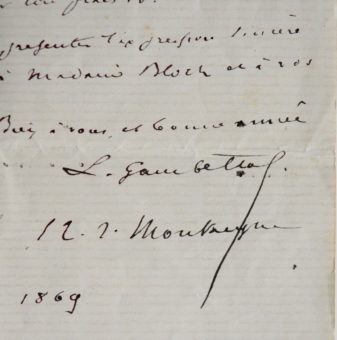 presenter l'expression sincère
à Madame Bloch et à vos
Bien à vous, et bonne année
L. Gambetta.
12. r. Montaigne
1869